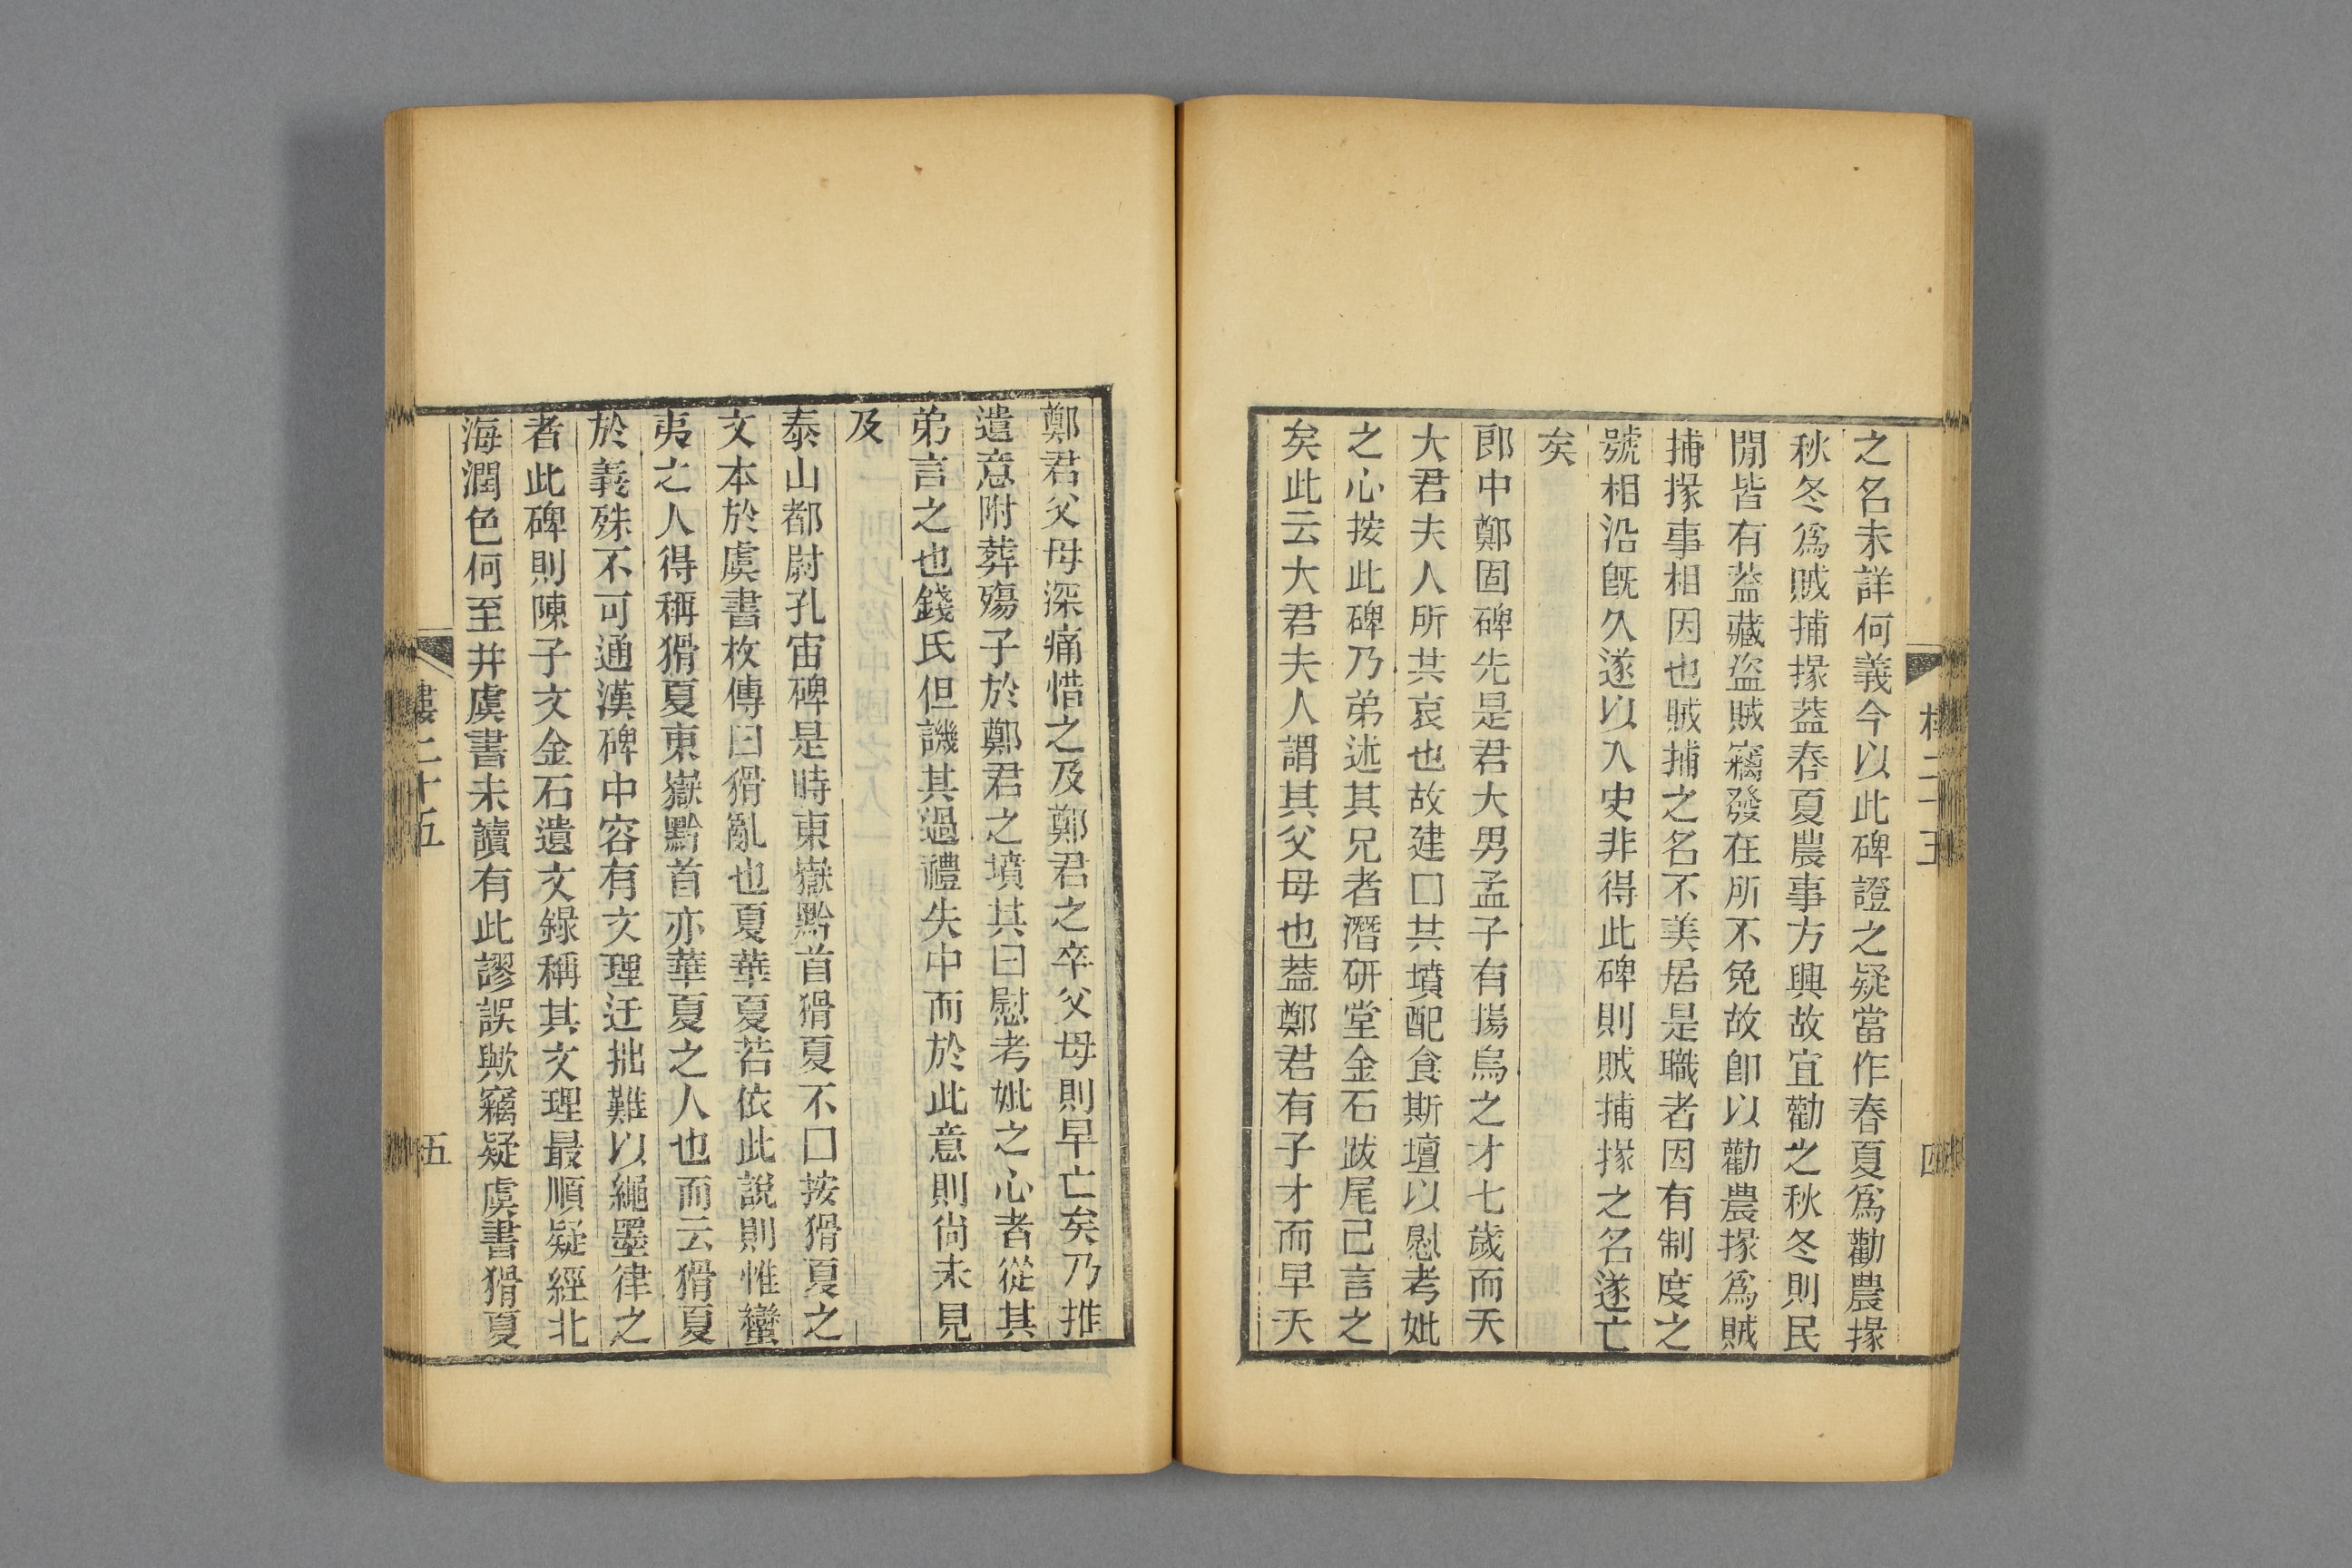 之名未詳何義今以此碑證之疑當作春夏爲勸農掾
秋冬爲賊捕掾葢春夏農事方興故宜勸之秋冬則民
閒皆有葢藏盜賊竊發在所不免故卽以勸農掾爲賊
捕掾事相因也賊捕之名不美居是職者因有制度之
號相沿旣久遂以入史非得此碑則賊捕掾之名遂亡
矣
郎中鄭固碑先是君大男孟子有揚烏之才七歲而夭
大君夫人所共哀也故建囗共墳配食斯壇以慰考妣
之心按此碑乃弟述其兄者潛硏堂金石跋尾已言之
矣此云大君夫人謂其父母也葢鄭君有子才而早夭
四
鄭君父母深痛惜之及鄭君之卒父母則早亡矣乃推
遺意附葬殤子於鄭君之墳其曰慰考妣之心者從其
弟言之也錢氏但譏其過禮失中而於此意則尙未見
及
泰山都尉孔宙碑是時東嶽黔首猾夏不囗按猾夏之
文本於虞書枚傳曰猾亂也夏華夏若依此說則惟蠻
夷之人得稱猾夏東嶽黔首亦華夏之人也而云猾夏
於義殊不可通漢碑中容有文理迂拙難以繩墨律之
者此碑則陳子文金石遺文錄稱其文理最順疑經北
海潤色何至幷虞書未讀有此謬誤歟竊疑虞書猾夏
二十五
五